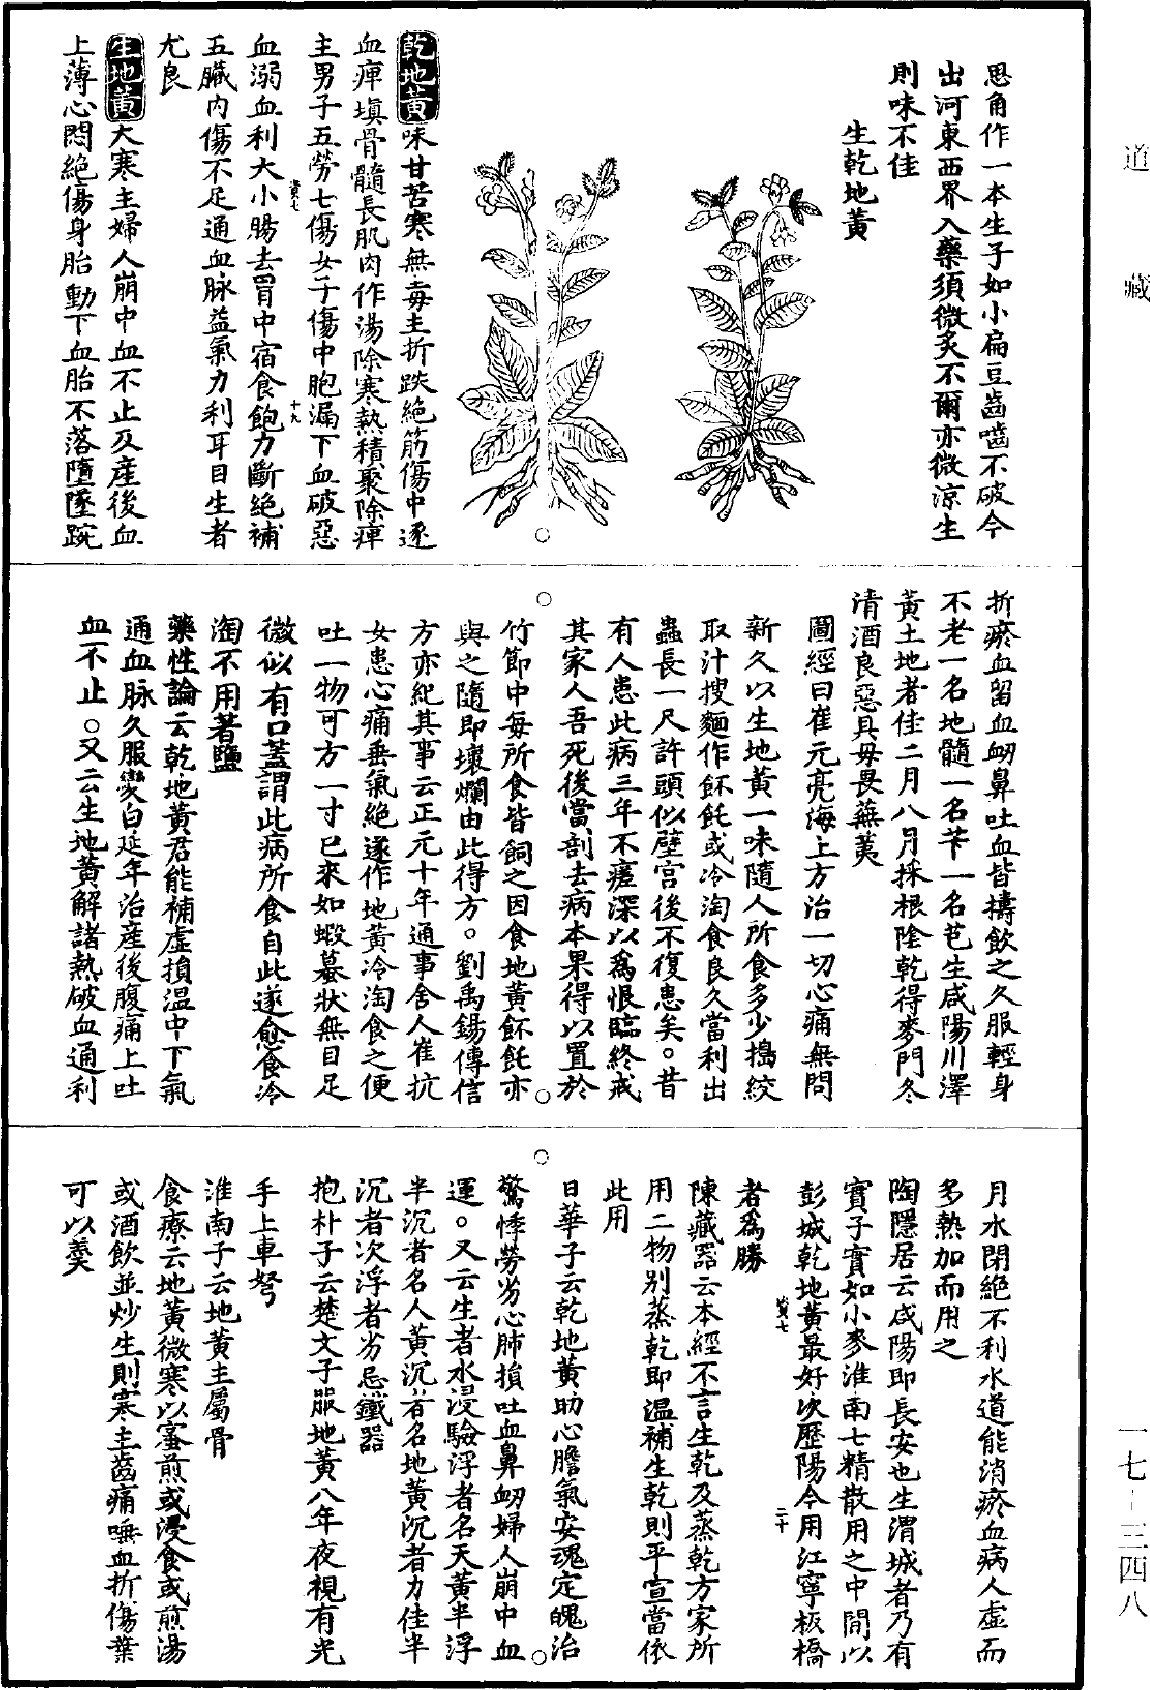 道藏
思角作一本生子如小扁豆齒嚙不破今
出河東西界入藥須微炙不爾亦微涼生
則味不佳
生乾地黃
乾地黃味甘苦寒無毒主折跌絕筋傷中逐
血痺塡骨髓長肌肉作湯除寒熱積聚除痺
主男子五勞七傷女子傷中胞漏下血破惡
血溺血利大小腸去胃中宿食飽力斷絕補
五臟內傷不足通血脉益氣力利耳目生者
尤良
生地黃大寒主婦人崩中血不止及產後血
上薄心悶絕傷身胎動下血胎不落墮墜踠
折瘀血留血衂鼻吐血皆擣飲之久服輕身
不老一名地髓一名苄一名芑生咸陽川澤
黃土地者佳二月八月採根陰乾得麥門冬
清酒良惡貝母畏蕪荑
圖經曰崔元亮海上方治一切心痛無問
新久以生地黃一味隨人所食多少搗絞
取汁搜麵作飥或冷淘食良久當利出
蟲長一尺許頭似壁宮後不復患矣。昔
有人患此病三年不瘥深以爲恨臨終戒
其家人吾死後當剖去病本果得以置於
竹節中每所食皆飼之因食地黃飥亦
與之隨即壞爛由此得方。劉禹錫傳信
方亦紀其事云正元十年通事舍人崔抗
女患心痛垂氣絕遂作地黃冷淘食之便
吐一物可方一寸已來如蝦蟇狀無目足
微似有口蓋謂此病所食自此遂愈食冷
淘不用著鹽
藥性論云乾地黃君能補虛損溫中下氣
通血脉久服變白延年治產後腹痛上吐
血不止。又云生地黃解諸熱破血通利
月水閉絕不利水道能消瘀血病人虛而
多熱加而用之
陶隱居云咸陽即長安也生渭城者乃有
實子實如小麥淮南七精散用之中間以
彭城乾地黃最好次歷陽今用江寧板橋
者爲勝
陳藏器云本經不言生乾及蒸乾方家所
用二物別蒸乾即溫補生乾則平宣當依
此用
日華子云乾地黃助心膽氣安魂定魄治
驚悸勞劣心肺損吐血鼻衂婦人崩中血
運。又云生者水浸驗浮者名天黃半浮
半沉者名人黃沉者名地黃沉者力佳半
沉者次浮者劣忌鐵器
抱朴子云楚文子服地黃八年夜視有光
手上車弩
淮南子云地黃主屬骨
食療云地黃微寒以蜜煎或浸食或煎湯
或酒飲並炒生則寒主齒痛唾血折傷葉
可以羹
十九
二十
一七-三四八